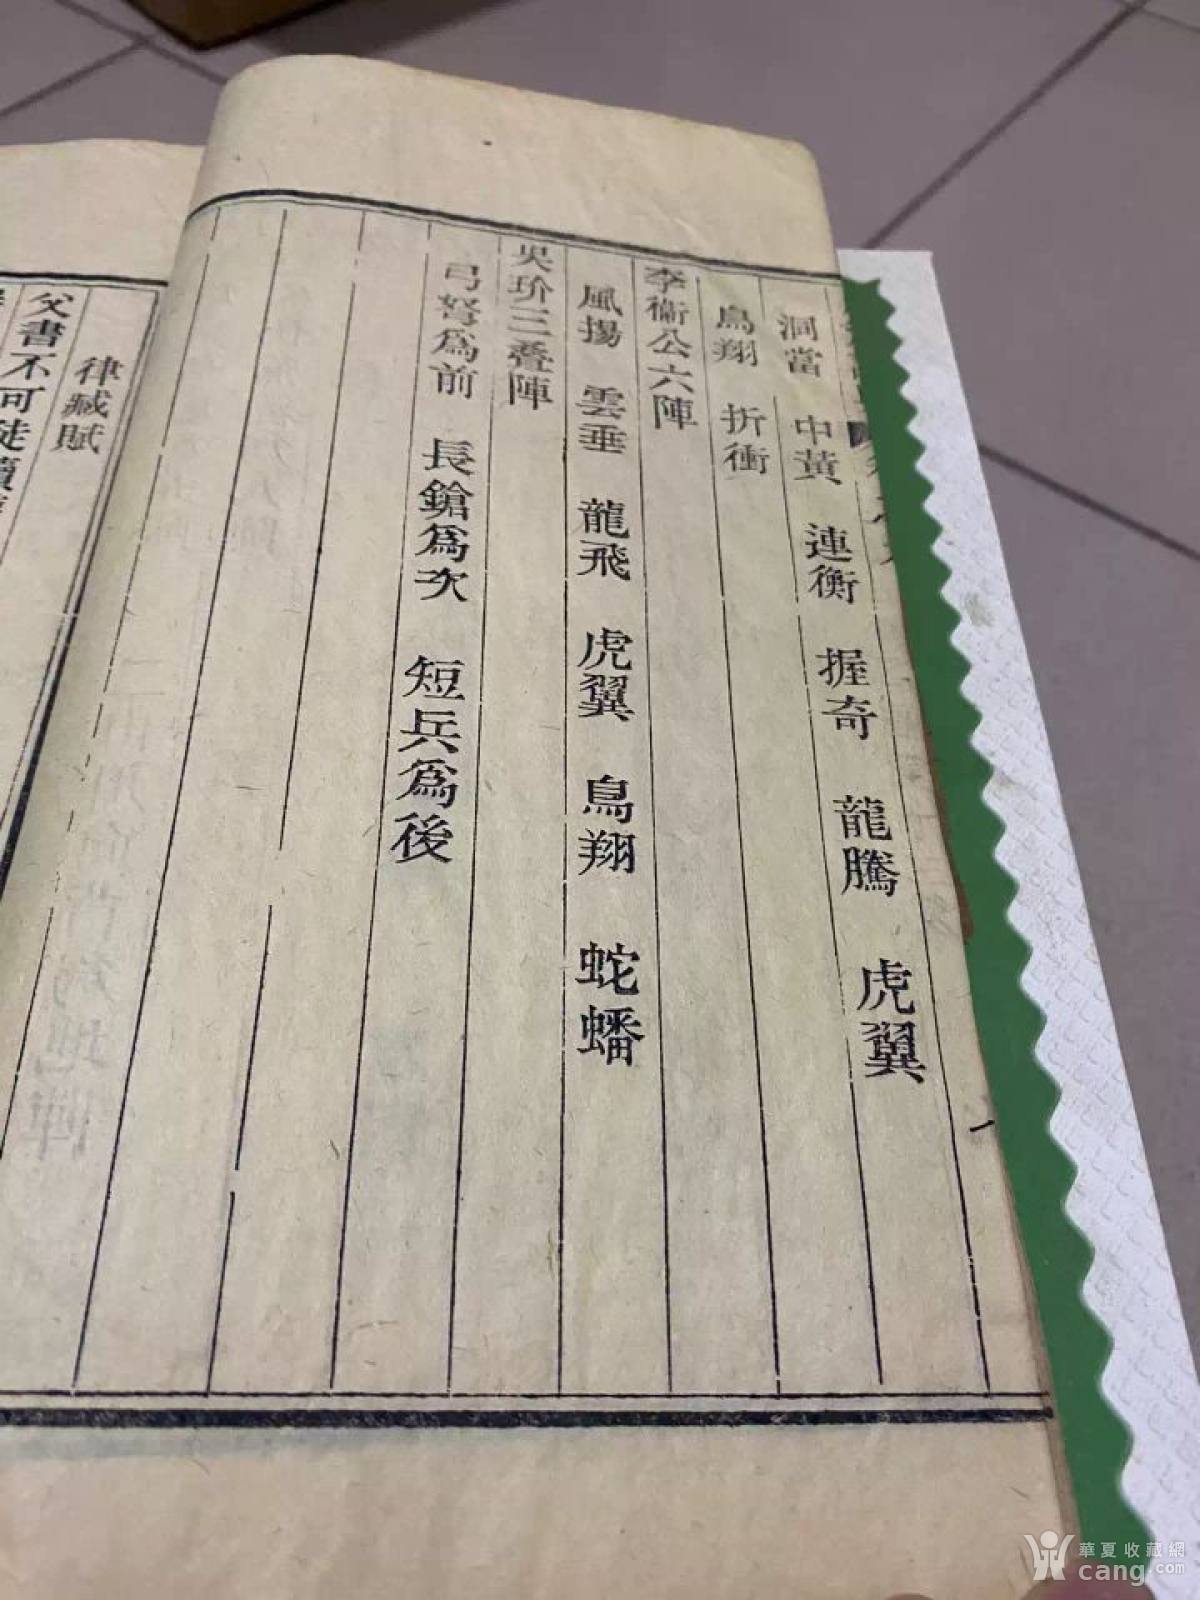 洞當　中黃　連衡　握奇　龍騰　虎翼
鳥翔　折衝
李衞公六陣
風揚　雲垂　龍飛　虎翼　鳥翔　蛇蟠
吳玠三疊陣
弓弩爲前　長鎗爲次　短兵爲後
律臧賦
父書不可徒讀
華夏收藏網
cang.com